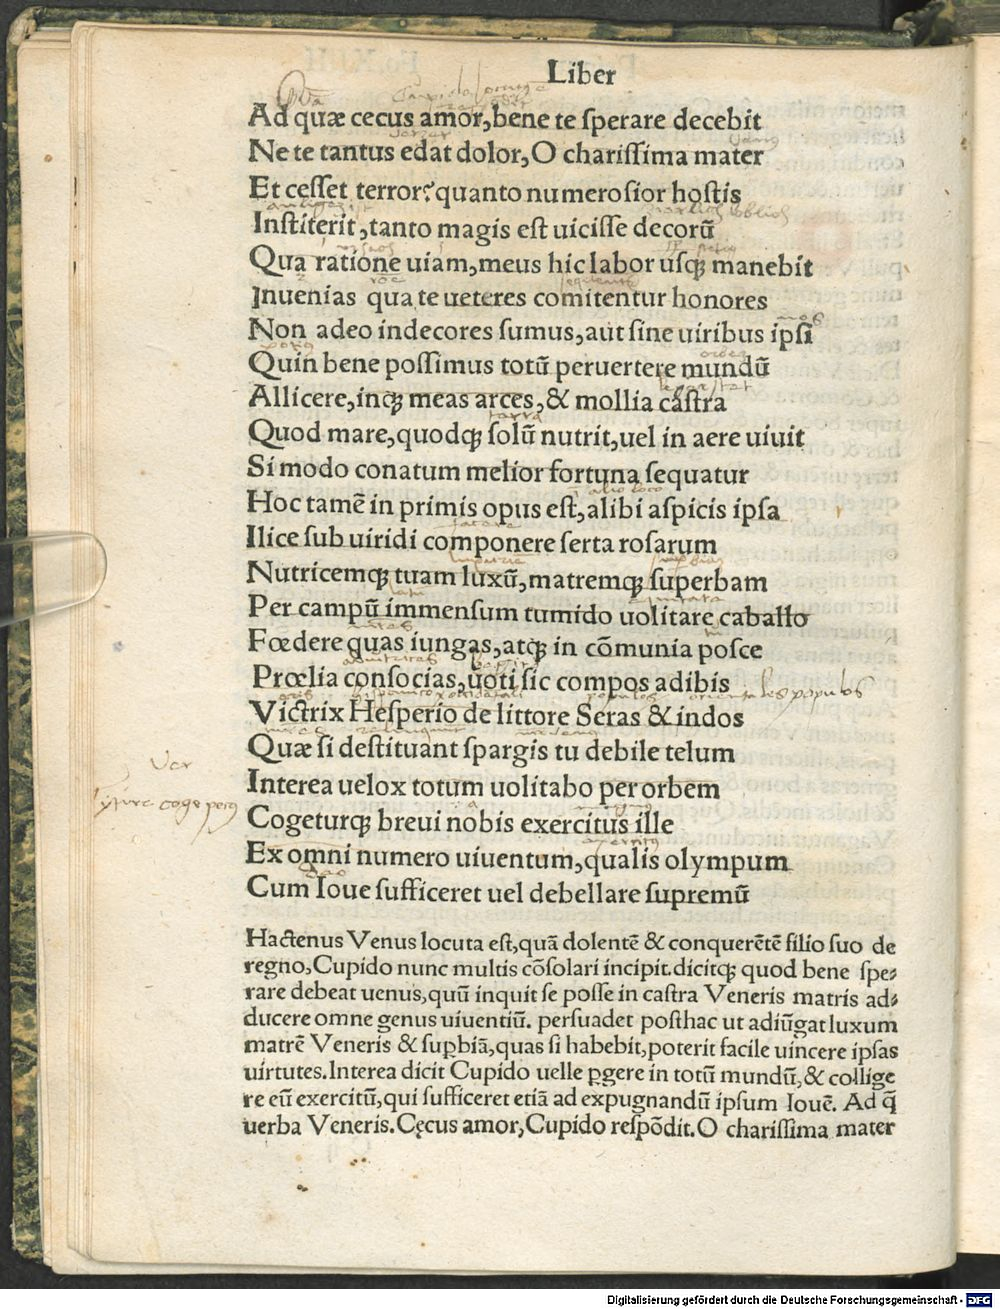 Liber
Ad quæ cecus amor, bene te ſperare decebit
Ne te tantus edat dolor, O chariſſima mater
Et ceſſet terror: quanto numeroſior hoſtis
Inſtiterit, tanto magis eſt uiciſſe decorū
Qua ratione uiam, meus hic labor uſq; manebit
Inuenias qua te ueteres comitentur honores
Non adeo indecores ſumus, aut ſine uiribus ipſi
Quin bene poſſimus totū peruertere mundū
Allicere, inq; meas arces, & mollia caſtra
Quod mare, quodq; ſolū nutrit, uel in aere uiuit
Si modo conatum melior fortuna ſequatur
Hoc tamē in primis opus eſt, alibi aſpicis ipſa
Ilice ſub uiridi componere ſerta roſarum
Nutricemq; tuam luxū, matremq; ſuperbam
Per campū immenſum tumido uolitare caballo
Fœdere quas iungas, atq; in cōmunia poſce
Prœlia conſocias, uoti ſic compos adibis
Victrix Heſperio de littore Seras & indos
Quæ ſi deſtituant ſpargis tu debile telum
Interea uelox totum uolitabo per orbem
Cogeturq; breui nobis exercitus ille
Ex omni numero uiuentum, qualis olympum
Cum Ioue ſufficeret uel debellare ſupremū
Hactenus Venus locuta eſt, quā dolentē & conquerētē filio ſuo de
regno, Cupido nunc multis cōſolari incipit. dicitq; quod bene ſpe⸗
rare debeat uenus, quū inquit ſe poſſe in caſtra Veneris matris ad⸗
ducere omne genus uiuentiū. perſuadet poſthac ut adiūgat luxum
matrē Veneris & ſuꝑbiā, quas ſi habebit, poterit facile uincere ipſas
uirtutes. Interea dicit Cupido uelle ꝑgere in totū mundū, & collige
re eū exercitū, qui ſufficeret etiā ad expugnandū ipſum Iouē. Ad q̄
uerba Veneris. Cęcus amor, Cupido reſpōdit. O chariſſima mater
Digitalisierung gefördert durch die Deutsche Forschungsgemeinschaft - DFG